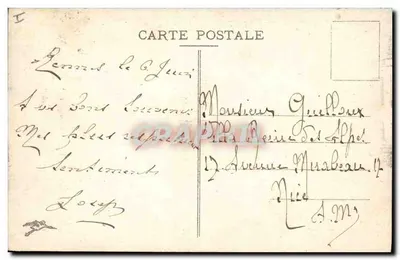 I
CARTE POSTALE
Rennes le 6 Juin
A vos bons Souvenirs
Mes plus
Sentiments
Monsieur Guilloux
Reine des Alpes
17 Avenue Mirabeau 17
Nice
A.M.